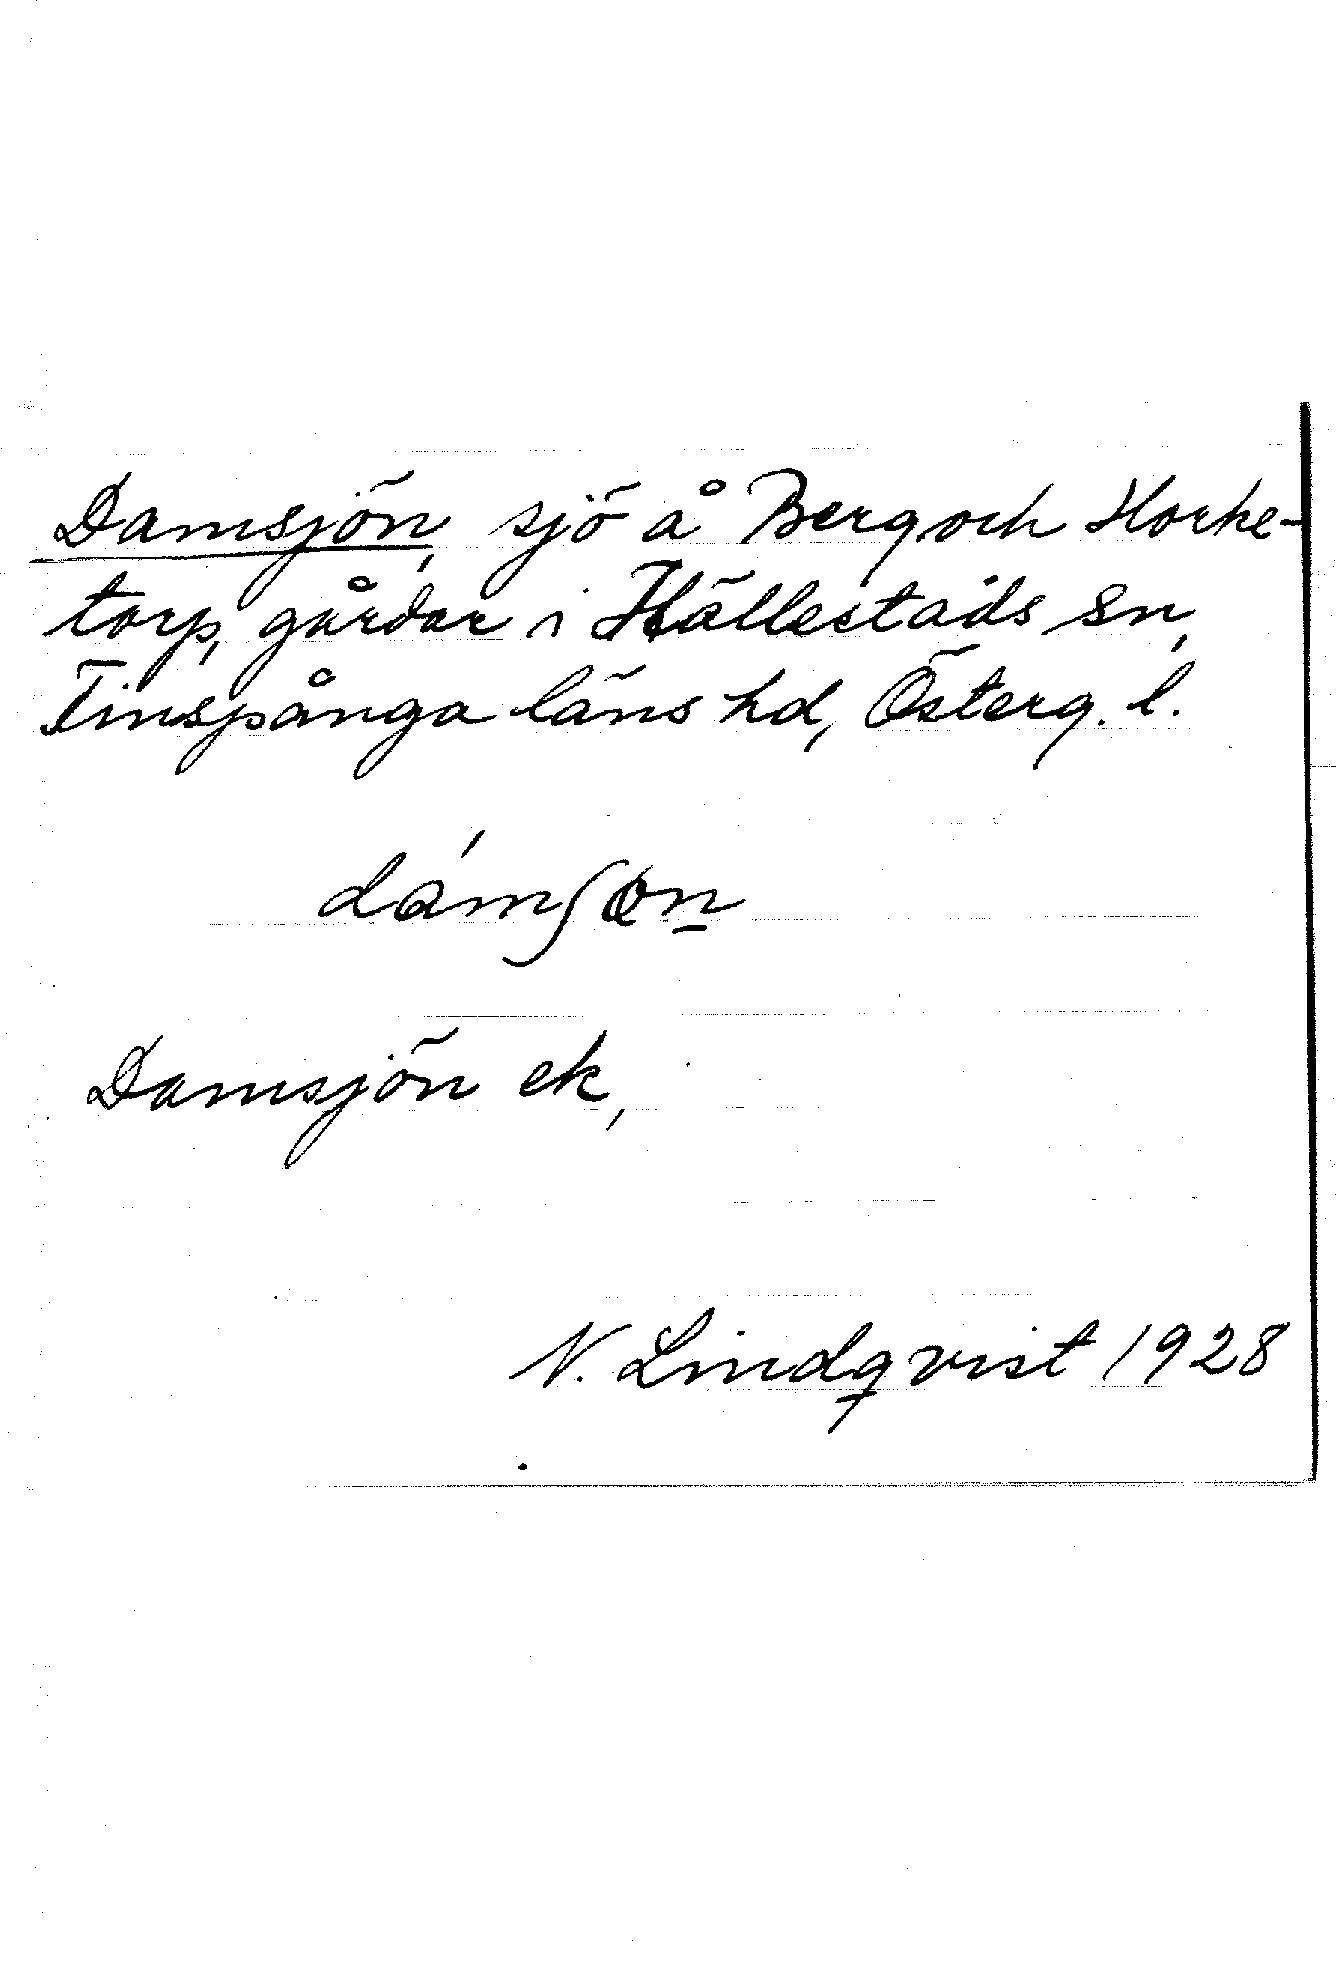 Damsjön, sjö å Berg och Horke-
torp, gårdar i Hällestads sn,
Finspånga läns hd, Österg. l.
dámʃøn̲
Damsjön ek,
N. Lindqvist 1928